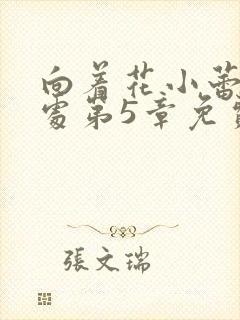 向着花小蕾
处第5章免
張文瑞